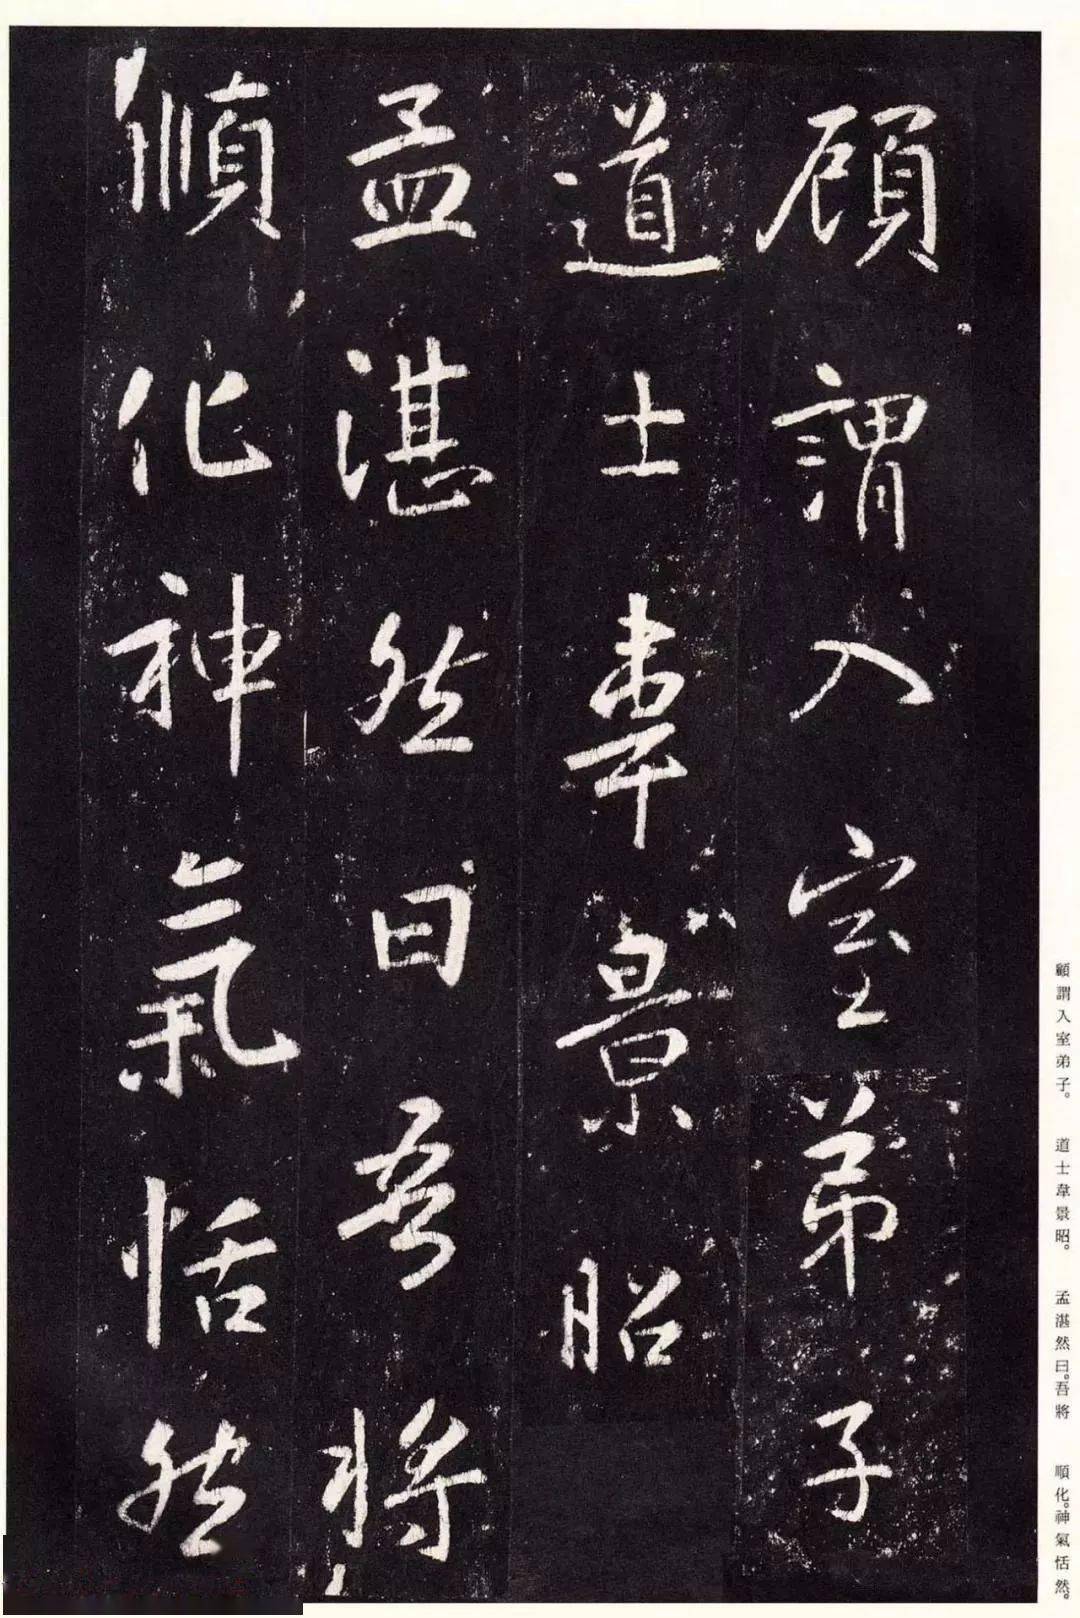 顧謂入室弟子
道士韋景昭
孟湛然曰吾將
順化神氣恬然
顧謂入室弟子。 道士韋景昭。 孟湛然曰。吾將 順化。神氣恬然。